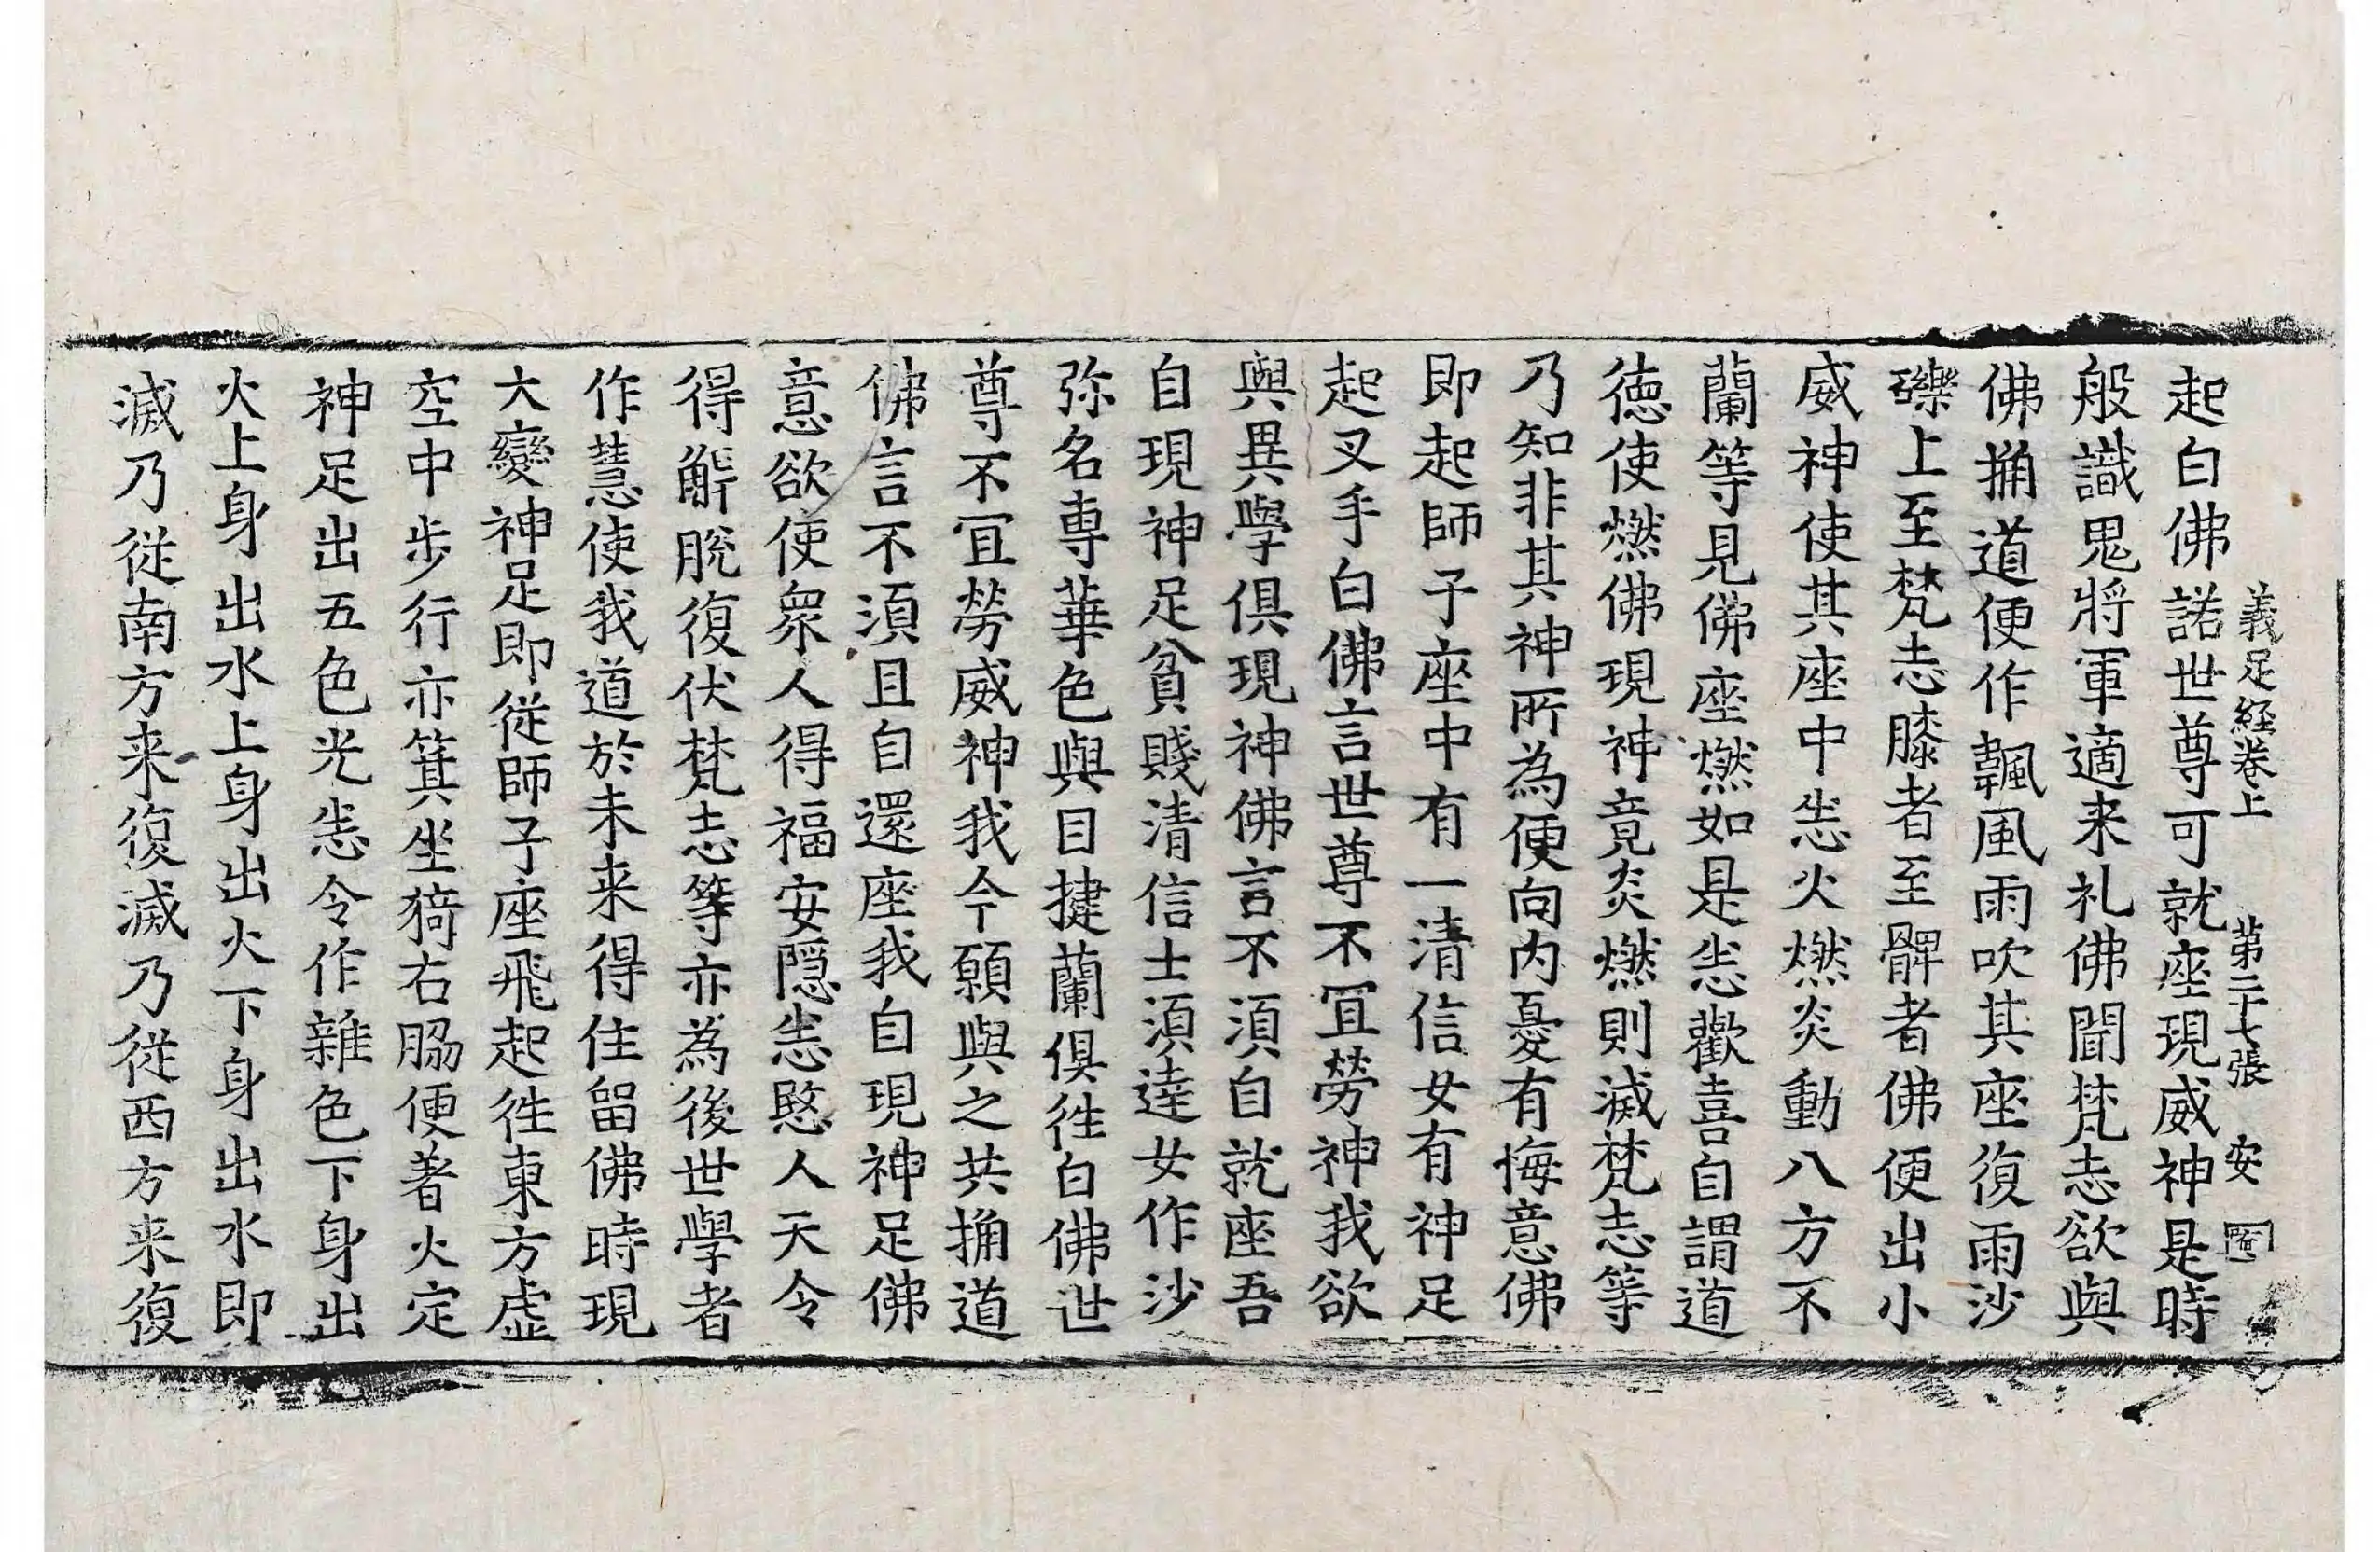 義足經卷上　第二十七張　安
起白佛諾世尊可就座現威神是時
般識鬼將軍適来礼佛聞梵志欲與
佛捔道便作飄風雨吹其座復雨沙
礫上至梵志膝者至髀者佛便出小
威神使其座中恙火燃炎動八方不
蘭等見佛座燃如是恙歡喜自謂道
德使燃佛現神竟炎燃則滅梵志等
乃知非其神所為便向内憂有悔意佛
即起師子座中有一清信女有神足
起叉手白佛言世尊不冝勞神我欲
與異學俱現神佛言不須自就座吾
自現神足貧賤清信士須達女作沙
弥名専華色與目揵蘭俱徃白佛世
尊不冝勞威神我今願與之共捔道
佛言不須且自還座我自現神足佛
意欲使衆人得福安隠恙愍人天令
得解脫復伏梵志等亦為後世學者
作慧使我道於未来得住留佛時現
大變神足即從師子座飛起徃東方虛
空中步行亦箕坐猗右脇便著火定
神足出五色光恙令作雜色下身出
火上身出水上身出火下身出水即
滅乃從南方来復滅乃從西方来復